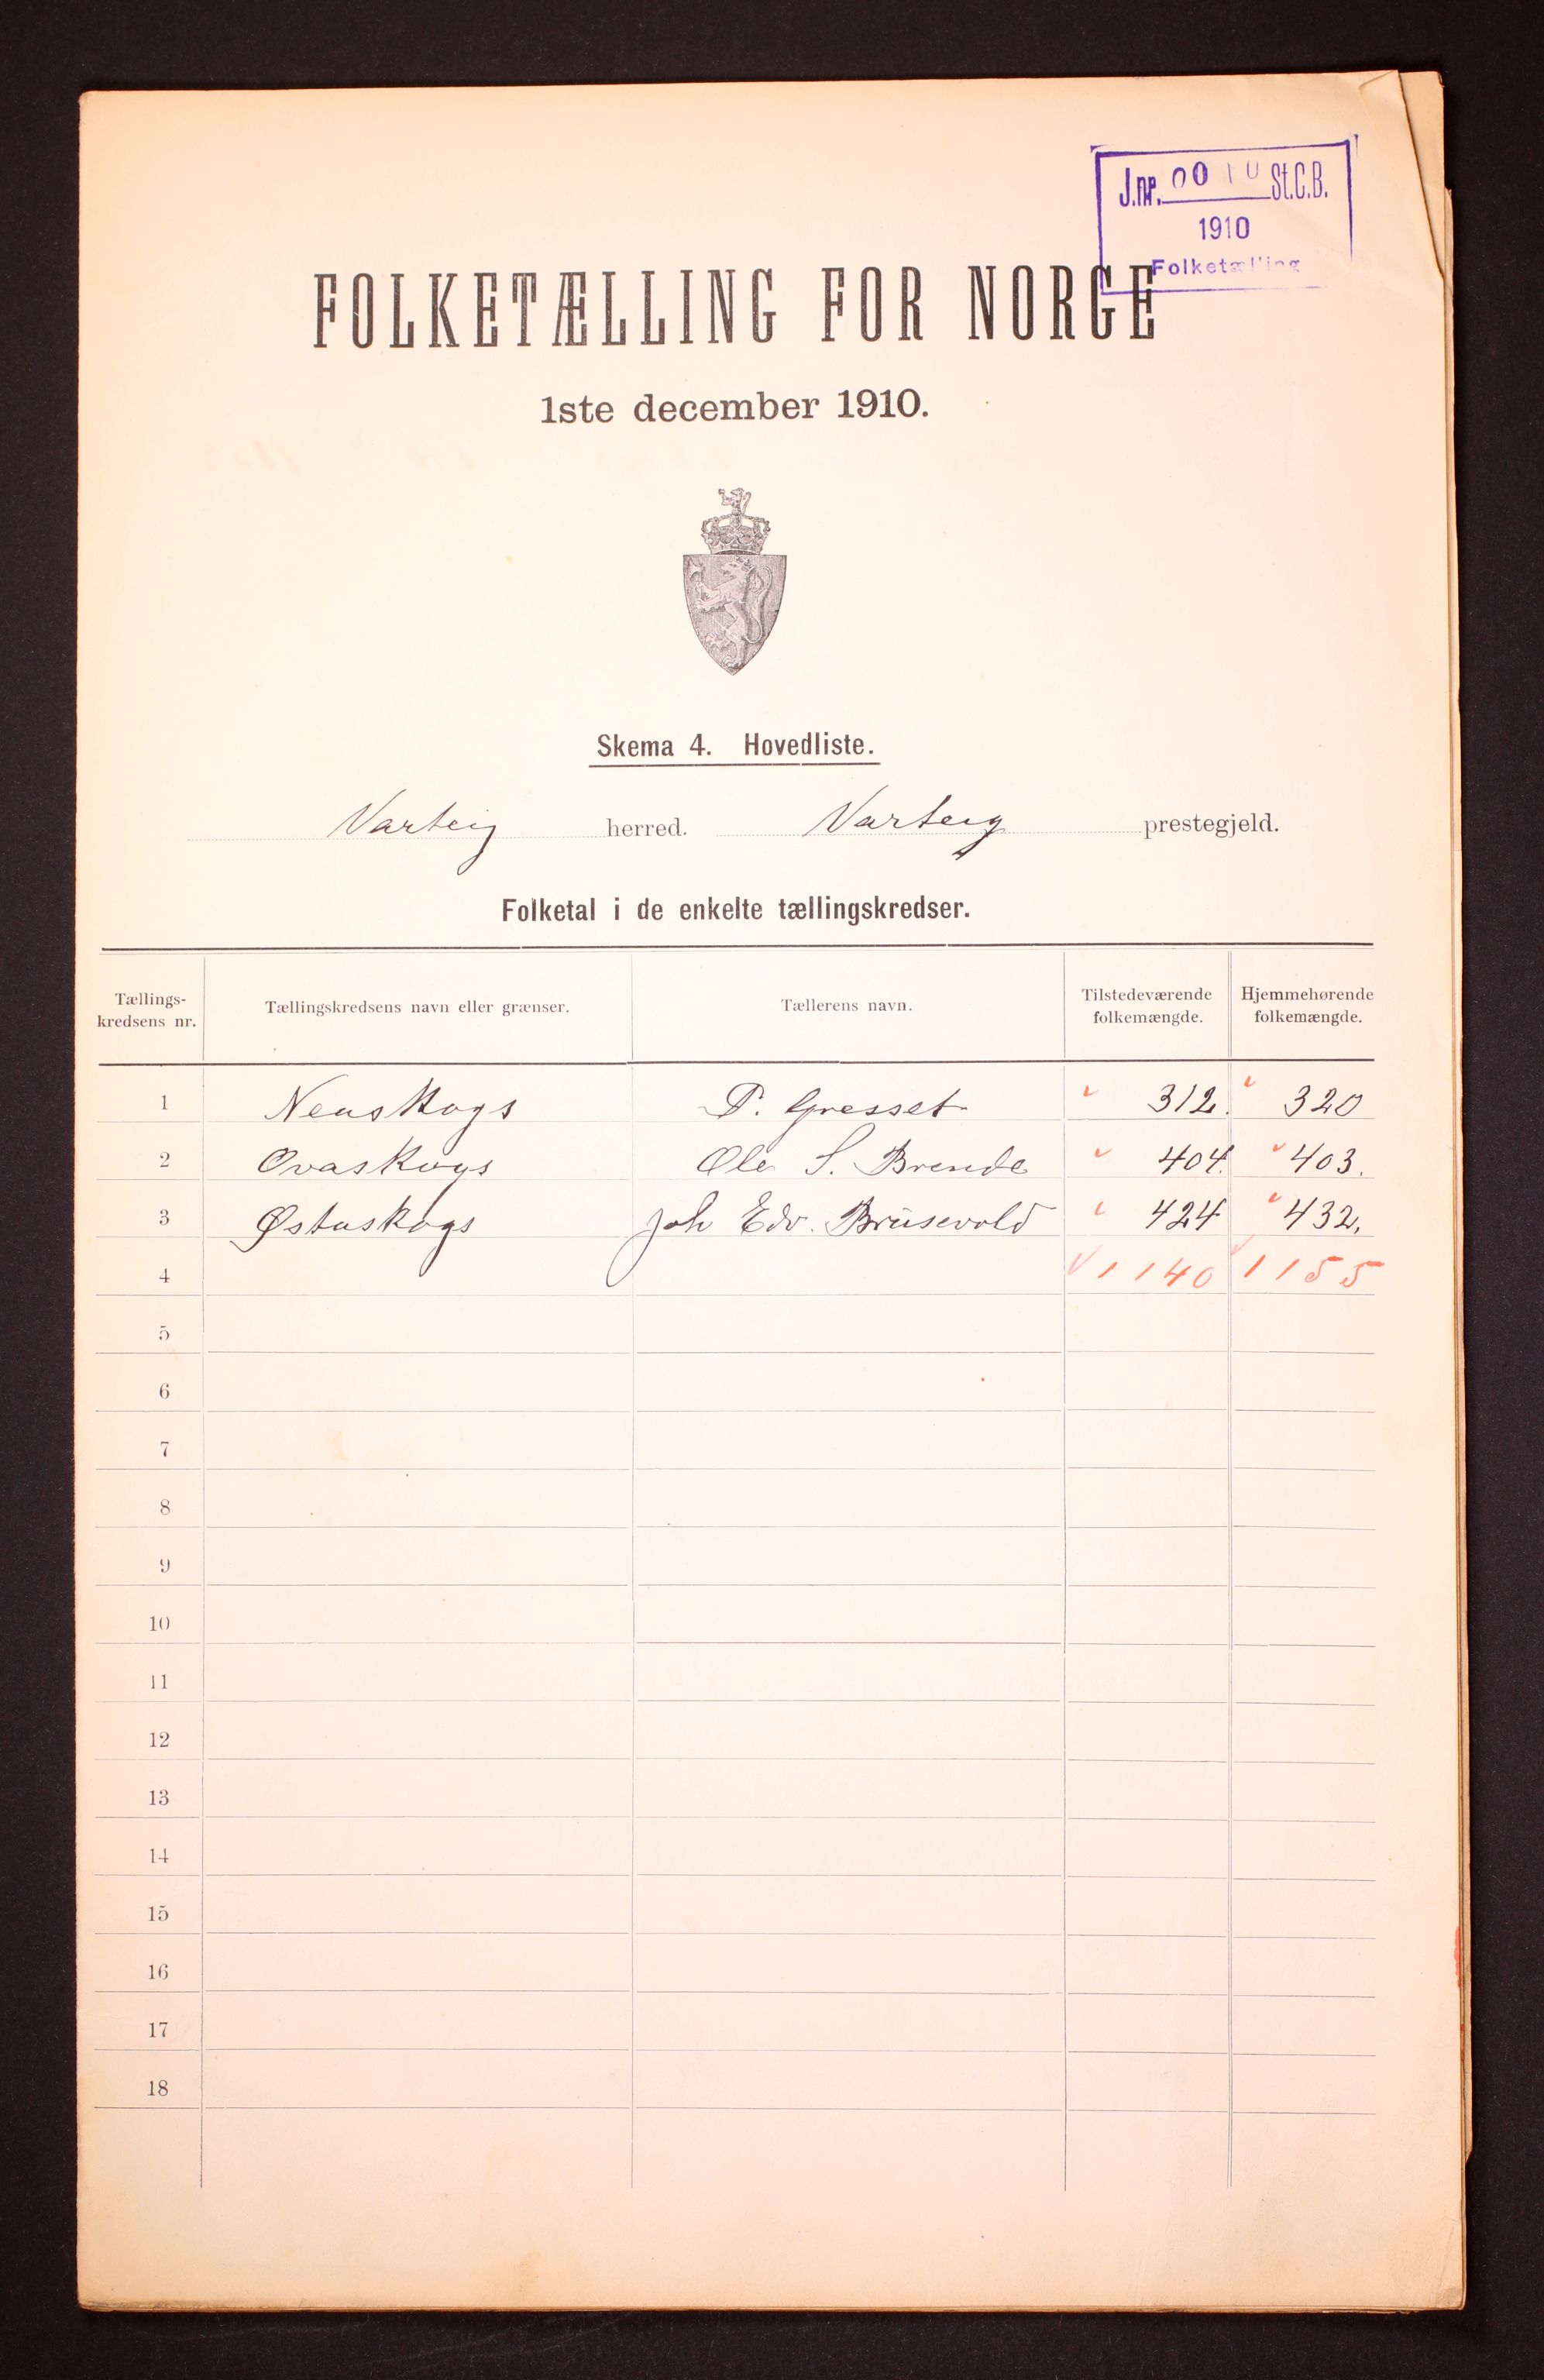 J.nr. 0010 St.C.B.
1910
Folketælling
FOLKETÆLLING FOR NORGE
1ste december 1910.
Skema 4. Hovedliste.
Varteig herred. Varteig prestegjeld.
Folketal i de enkelte tællingskredser.
Tællings-kredsens nr. Tællingskredsens navn eller grænser. Tællerens navn. Tilstedeværende folkemængde. Hjemmehørende folkemængde.
1 Neaskogs P. Gresset 312. 320
2 Ovaskogs Ole S. Brende 404. 403.
3 Østaskogs Joh Edv. Brusevold 424 432.
4 1140 1155
5
6
7
8
9
10
11
12
13
14
15
16
17
18